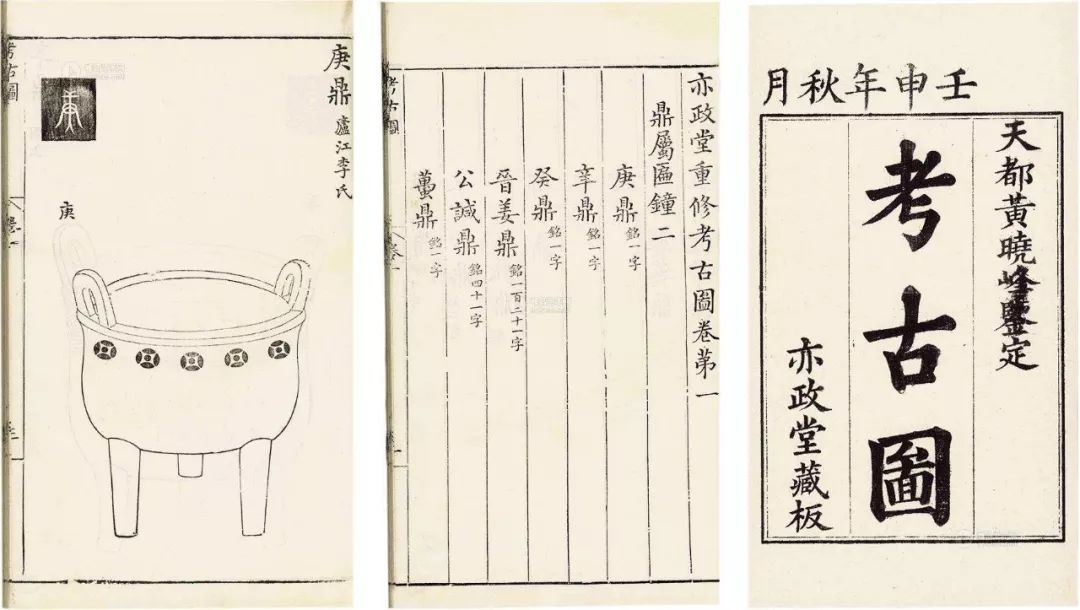 壬申年秋月
天都黃曉峰鑒定
考古圖
亦政堂藏板
亦政堂重修考古圖卷第一
鼎屬匾鐘二
庚鼎 銘一字
辛鼎 銘一字
癸鼎 銘一字
晉姜鼎 銘一百二十一字
公諴鼎 銘四十一字
蠆鼎 銘一字
考古圖
卷一
庚鼎 廬江李氏
庚
考古圖
卷一